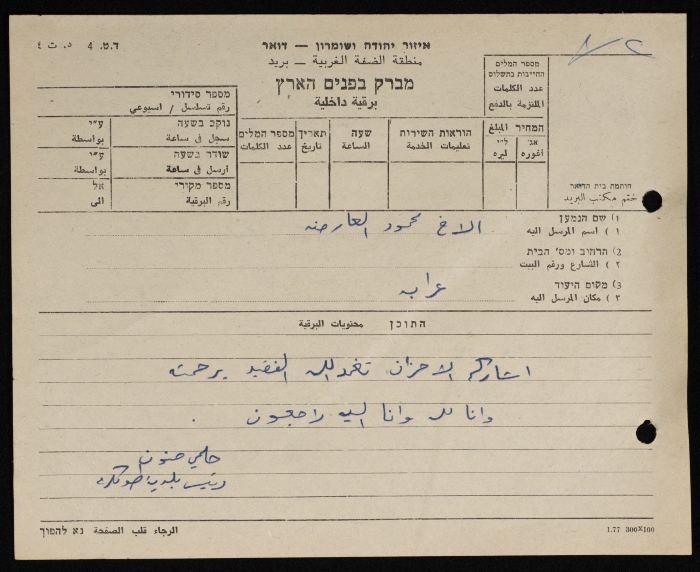 ד.ט. 4 د. ت ٤
איזור יהודה ושומרון — דואר
منطقة الضفة الغربية — بريد
מברק בפנים הארץ
برقية داخلية
מספר המלים
החייבות בתשלום
عدد الكلمات
الملتزمة بالدفع
המחיר المبلغ
אג' ל"י
أغورة ليرة
חותמת בית הדואר
ختم مكتب البريد
מספר סידורי
رقم تسلسل / اسبوعي
נוקב בשעה ע"י
سجل في ساعة بواسطة
שודר בשעה ע"י
أرسل في ساعة بواسطة
מספר מקורי אל
رقم البرقية الى
מספר המלים תאריך שעה הוראות השירות
عدد الكلمات تاريخ الساعة تعليمات الخدمة
1) שם הנמען
١ ) اسم المرسل اليه
الاخ محمود العارضه
2) הרחוב ומס' הבית
٢ ) الشارع ورقم البيت
3) מקום היעוד
٣ ) مكان المرسل اليه
عرابه
התוכן محتويات البرقية
اشاركم الاحزان تغمد الله الفقيد برحمته
وانا لله وانا اليه راجعون .
حلمي حنون
رئيس بلدية طولكرم
الرجاء قلب الصفحة נא להפוך
1.77 300X100